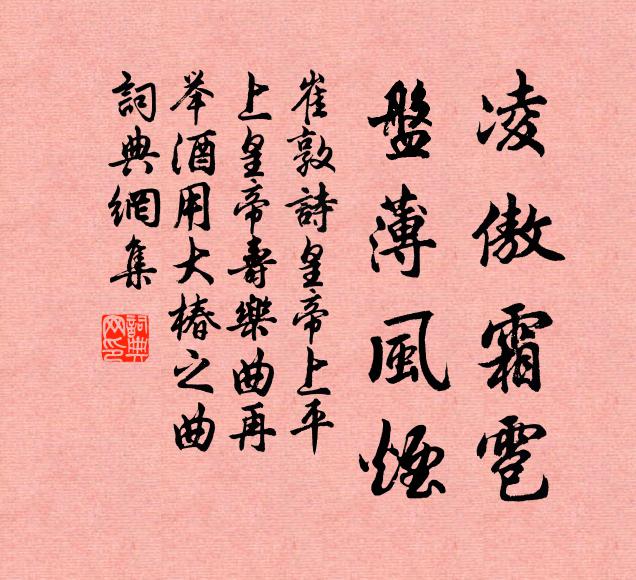 凌傲霜雹
盤薄風煙
崔敦詩皇帝上平
上皇帝壽樂曲再
举酒用大椿之曲
詞典網集
詞典网印